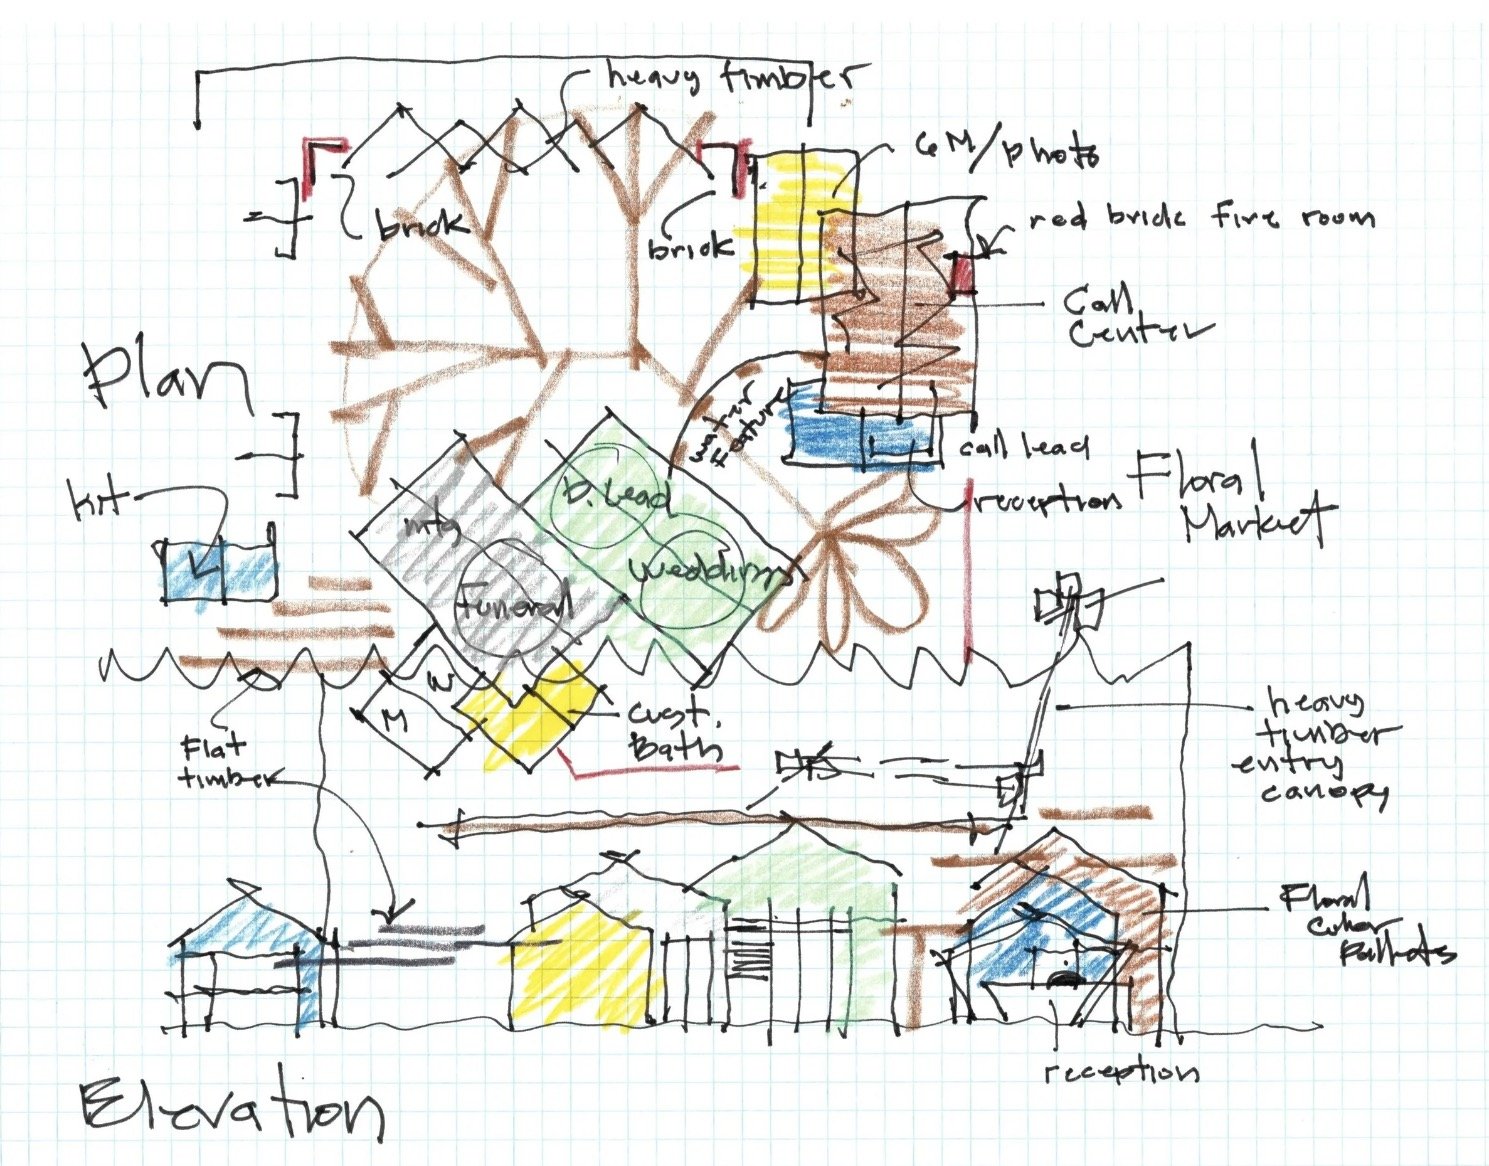 heavy timber
GM/photo
brick
brick
red brick fire room
Call
Center
Plan
water
feature
call lead
reception
Floral
Market
kit
D. Lead
mtg
wedding
Funeral
W
M
cust.
Bath
Flat
timber
heavy
timber
entry
canopy
Floral
reception
Elevation